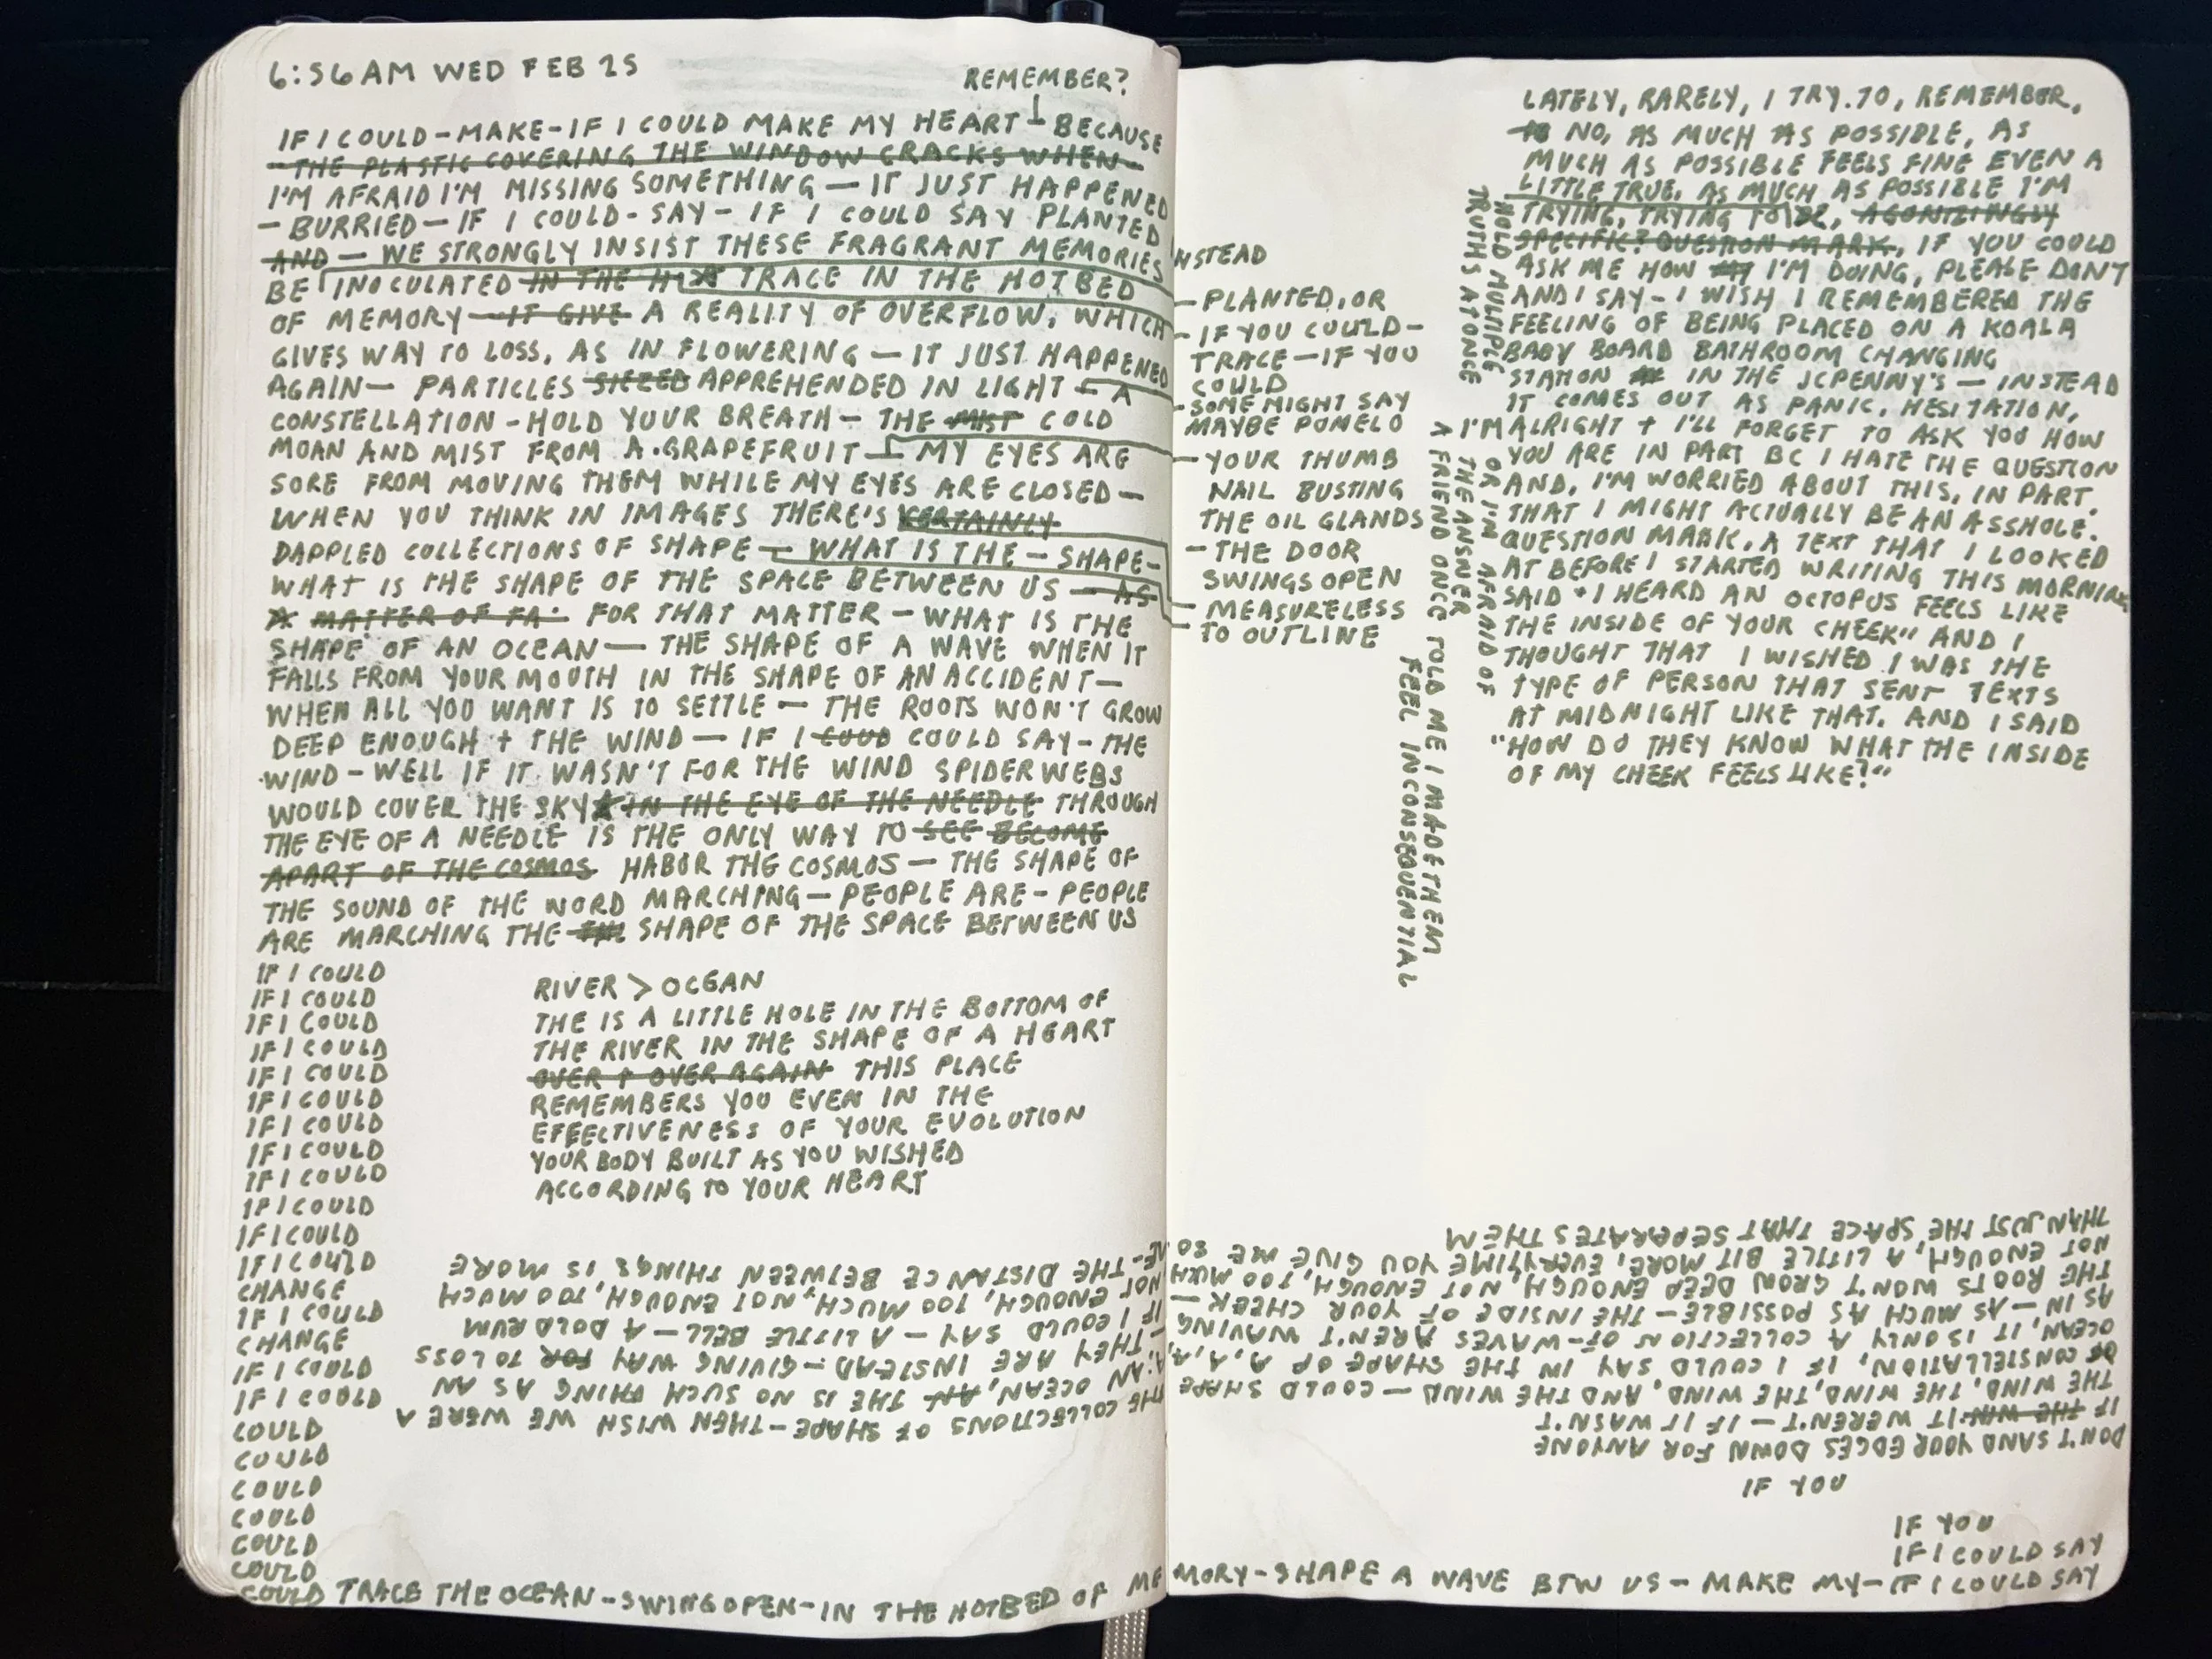 6:56AM WED FEB 25
REMEMBER?
IF I COULD-MAKE-IF I COULD MAKE MY HEART ⊥ BECAUSE
-THE PLASTIC COVERING THE WINDOW CRACKS WHEN-
I'M AFRAID I'M MISSING SOMETHING — IT JUST HAPPENED
- BURRIED — IF I COULD - SAY - IF I COULD SAY PLANTED
AND — WE STRONGLY INSIST THESE FRAGRANT MEMORIES
BE INOCULATED IN THE TRACE IN THE HOTBED
OF MEMORY — IT GIVE A REALITY OF OVERFLOW, WHICH
GIVES WAY TO LOSS, AS IN FLOWERING — IT JUST HAPPENED
AGAIN — PARTICLES SIEZED APPREHENDED IN LIGHT - A
CONSTELLATION - HOLD YOUR BREATH — THE MIST COLD
MOAN AND MIST FROM A GRAPEFRUIT — MY EYES ARE
SORE FROM MOVING THEM WHILE MY EYES ARE CLOSED —
WHEN YOU THINK IN IMAGES THERE'S CERTAINLY
DAPPLED COLLECTIONS OF SHAPE — WHAT IS THE — SHAPE-
WHAT IS THE SHAPE OF THE SPACE BETWEEN US — AS
A MATTER OF FA- FOR THAT MATTER — WHAT IS THE
SHAPE OF AN OCEAN — THE SHAPE OF A WAVE WHEN IT
FALLS FROM YOUR MOUTH IN THE SHAPE OF AN ACCIDENT —
WHEN ALL YOU WANT IS TO SETTLE — THE ROOTS WON'T GROW
DEEP ENOUGH + THE WIND — IF I COUD COULD SAY - THE
WIND - WELL IF IT WASN'T FOR THE WIND SPIDERWEBS
WOULD COVER THE SKY IN THE EYE OF THE NEEDLE THROUGH
THE EYE OF A NEEDLE IS THE ONLY WAY TO SEE BECOME
APART OF THE COSMOS HABOR THE COSMOS — THE SHAPE OF
THE SOUND OF THE WORD MARCHING — PEOPLE ARE - PEOPLE
ARE MARCHING THE SHAPE OF THE SPACE BETWEEN US
IF I COULD
IF I COULD
IF I COULD
IF I COULD
IF I COULD
IF I COULD
IF I COULD
IF I COULD
IF I COULD
IF I COULD
IF I COULD
IF I COULD
CHANGE
IF I COULD
CHANGE
IF I COULD
IF I COULD
COULD
COULD
COULD
COULD
COULD
COULD
COULD TRACE THE OCEAN - SWING OPEN - IN THE HOTBED OF MEMORY - SHAPE A WAVE BTW US - MAKE MY - IF I COULD SAY
RIVER > OCEAN
THE IS A LITTLE HOLE IN THE BOTTOM OF
THE RIVER IN THE SHAPE OF A HEART
OVER + OVER AGAIN THIS PLACE
REMEMBERS YOU EVEN IN THE
EFFECTIVENESS OF YOUR EVOLUTION
YOUR BODY BUILT AS YOU WISHED
ACCORDING TO YOUR HEART
INSTEAD
- PLANTED, OR
- IF YOU COULD -
TRACE — IF YOU
COULD
- SOME MIGHT SAY
MAYBE POMELO
- YOUR THUMB
NAIL BUSTING
THE OIL GLANDS
- THE DOOR
SWINGS OPEN
- MEASURELESS
- TO OUTLINE
LATELY, RARELY, I TRY.TO, REMEMBER,
TO NO, AS MUCH AS POSSIBLE, AS
MUCH AS POSSIBLE FEELS FINE EVEN A
LITTLE TRUE. AS MUCH AS POSSIBLE I'M
TRYING, TRYING TO BE, AGONIZINGLY
SPECIFIC? QUESTION MARK, IF YOU COULD
ASK ME HOW I'M DOING, PLEASE DON'T
AND I SAY - I WISH I REMEMBERED THE
FEELING OF BEING PLACED ON A KOALA
BABY BOARD BATHROOM CHANGING
STATION IN THE JCPENNY'S — INSTEAD
IT COMES OUT AS PANIC, HESITATION,
I'M ALRIGHT + I'LL FORGET TO ASK YOU HOW
YOU ARE IN PART BC I HATE THE QUESTION
AND, I'M WORRIED ABOUT THIS, IN PART.
THAT I MIGHT ACTUALLY BE AN ASSHOLE.
QUESTION MARK, A TEXT THAT I LOOKED
AT BEFORE I STARTED WRITING THIS MORNING
SAID "I HEARD AN OCTOPUS FEELS LIKE
THE INSIDE OF YOUR CHEEK" AND I
THOUGHT THAT I WISHED I WAS THE
TYPE OF PERSON THAT SENT TEXTS
AT MIDNIGHT LIKE THAT. AND I SAID
"HOW DO THEY KNOW WHAT THE INSIDE
OF MY CHEEK FEELS LIKE?"
HOLD MULTIPLE
TRUTHS AT ONCE
OR I'M AFRAID OF
THE ANSWER
A FRIEND ONCE TOLD ME I MADE THEM
FEEL INCONSEQUENTIAL
IF I COULD SAY
IF YOU
IF YOU
DON'T SAND YOUR EDGES DOWN FOR ANYONE
IF THE WIN- IT WEREN'T — IF IT WASN'T
THE WIND, THE WIND, THE WIND, AND THE WIND — COULD SHAPE THE COLLECTIONS OF SHAPE - THEN WISH WE WERE A
OF CONSTELLATION, IF I COULD SAY IN THE SHAPE OF A, A, A, A, AN OCEAN, THE IS NO SUCH THING AS AN
OCEAN, IT IS ONLY A COLLECTION OF - WAVES AREN'T WAVING — THEY ARE INSTEAD - GIVING WAY FOR TO LOSS
AS IN — AS MUCH AS POSSIBLE — THE INSIDE OF YOUR CHEEK — IF I COULD SAY — A LITTLE BELL — A DOLDRUM
THE ROOTS WON'T GROW DEEP ENOUGH, NOT ENOUGH, TOO MUCH NOT ENOUGH, TOO MUCH, NOT ENOUGH, TOO MUCH
NOT ENOUGH, A LITTLE BIT MORE, EVERYTIME YOU GIVE ME SOME - THE DISTANCE BETWEEN THINGS IS MORE
THAN JUST THE SPACE THAT SEPERATES THEM